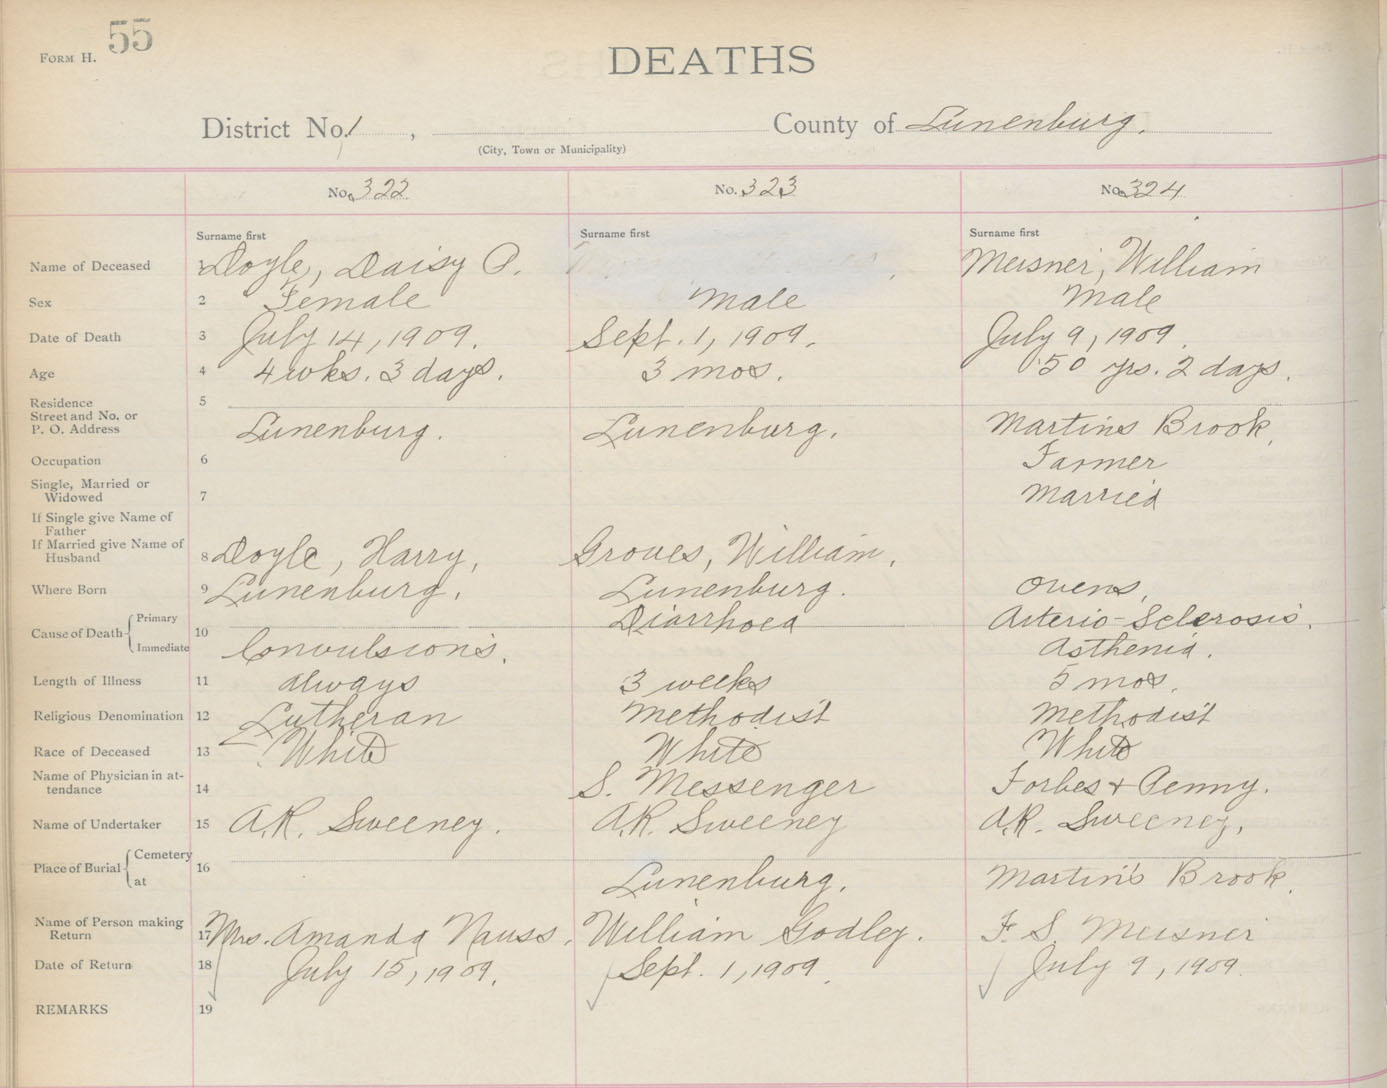 FORM H. 55
DEATHS
District No. 1 , County of Lunenburg.
(City, Town or Municipality)
No. 322 No. 323 No. 324
Surname first Surname first Surname first
Name of Deceased 1 Doyle, Daisy P. Meisner, William
Sex 2 Female Male Male
Date of Death 3 July 14, 1909. Sept. 1, 1909. July 9, 1909.
Age 4 4 wks. 3 days. 3 mos. 50 yrs. 2 days.
Residence 5
Street and No. or
P. O. Address Lunenburg. Lunenburg. Martins Brook.
Occupation 6 Farmer
Single, Married or
Widowed 7 Married
If Single give Name of
Father
If Married give Name of
Husband 8 Doyle, Harry, Groves, William.
Where Born 9 Lunenburg. Lunenburg. Ovens.
Cause of Death Primary 10 Diarrhoea Arterio-Sclerosis.
Immediate Convulsions. Asthenia.
Length of Illness 11 always 3 weeks 5 mos.
Religious Denomination 12 Lutheran Methodist Methodist
Race of Deceased 13 White White White
Name of Physician in at-
tendance 14 S. Messenger Forbes & Penny.
Name of Undertaker 15 A.R. Sweeney. A.R. Sweeney A.R. Sweeney.
Place of Burial Cemetery 16
at Lunenburg. Martin's Brook.
Name of Person making
Return 17 Mrs. Amanda Nauss. William Godley. F. S. Meisner
Date of Return 18 July 15, 1909. Sept. 1, 1909. July 9, 1909.
REMARKS 19